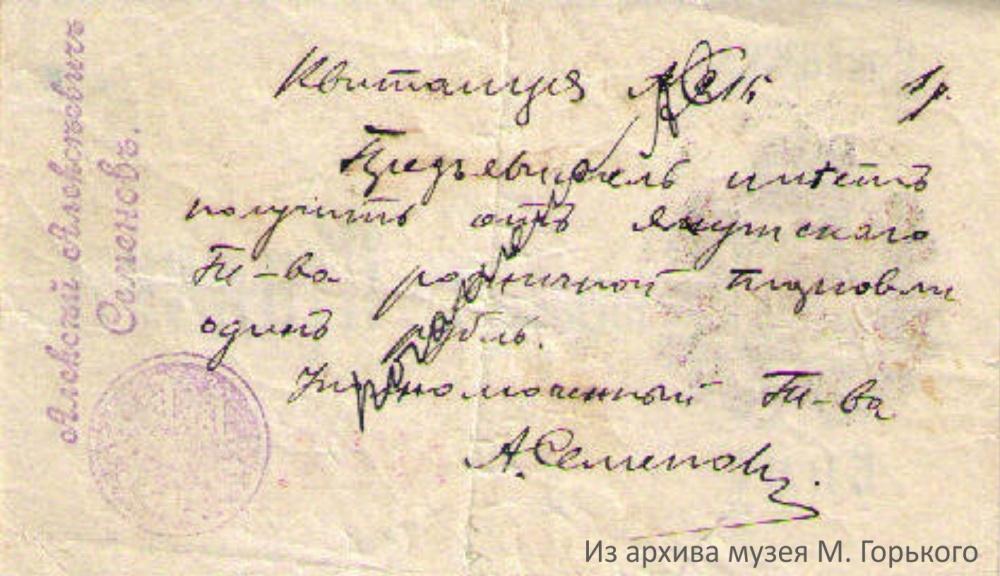 Алексѣй Алексѣевичъ
Семеновъ.
Квитанция 1 р.
Предъявитель имѣетъ
получить отъ Якутскаго
Т-ва розничной торговли
одинъ рубль.
Уполномоченный Т-ва
А. Семенов
Из архива музея М. Горького